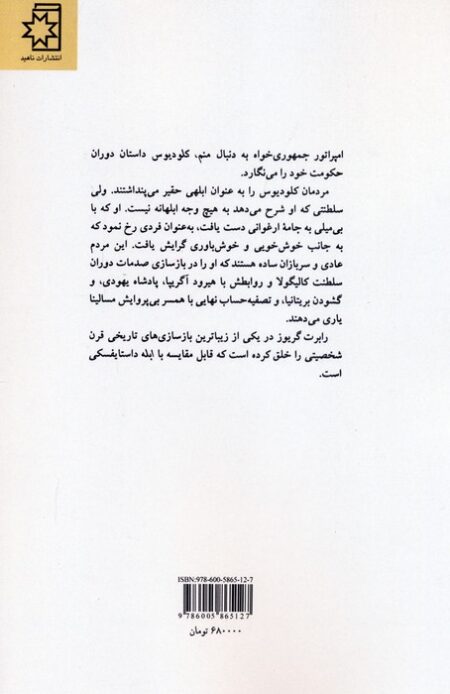 انتشارات ناهید
امپراتور جمهوری‌خواه به دنبال منم، کلودیوس داستان دوران
حکومت خود را می‌نگارد.
مردمان کلودیوس را به عنوان ابلهی حقیر می‌پنداشتند. ولی
سلطنتی که او شرح می‌دهد به هیچ وجه ابلهانه نیست. او که با
بی‌میلی به جامۀ ارغوانی دست یافت، به‌عنوان فردی رخ نمود که
به جانب خوش‌خویی و خوش‌باوری گرایش یافت. این مردم
عادی و سربازان ساده هستند که او را در بازسازی صدمات دوران
سلطنت کالیگولا و روابطش با هیرود آگریپا، پادشاه یهودی، و
گشودن بریتانیا، و تصفیه‌حساب نهایی با همسر بی‌پروایش مسالینا
یاری می‌دهند.
رابرت گریوز در یکی از زیباترین بازسازی‌های تاریخی قرن
شخصیتی را خلق کرده است که قابل مقایسه با ابله داستایفسکی
است.
ISBN:978-600-5865-12-7
9786005865127
۶۸۰۰۰۰ تومان